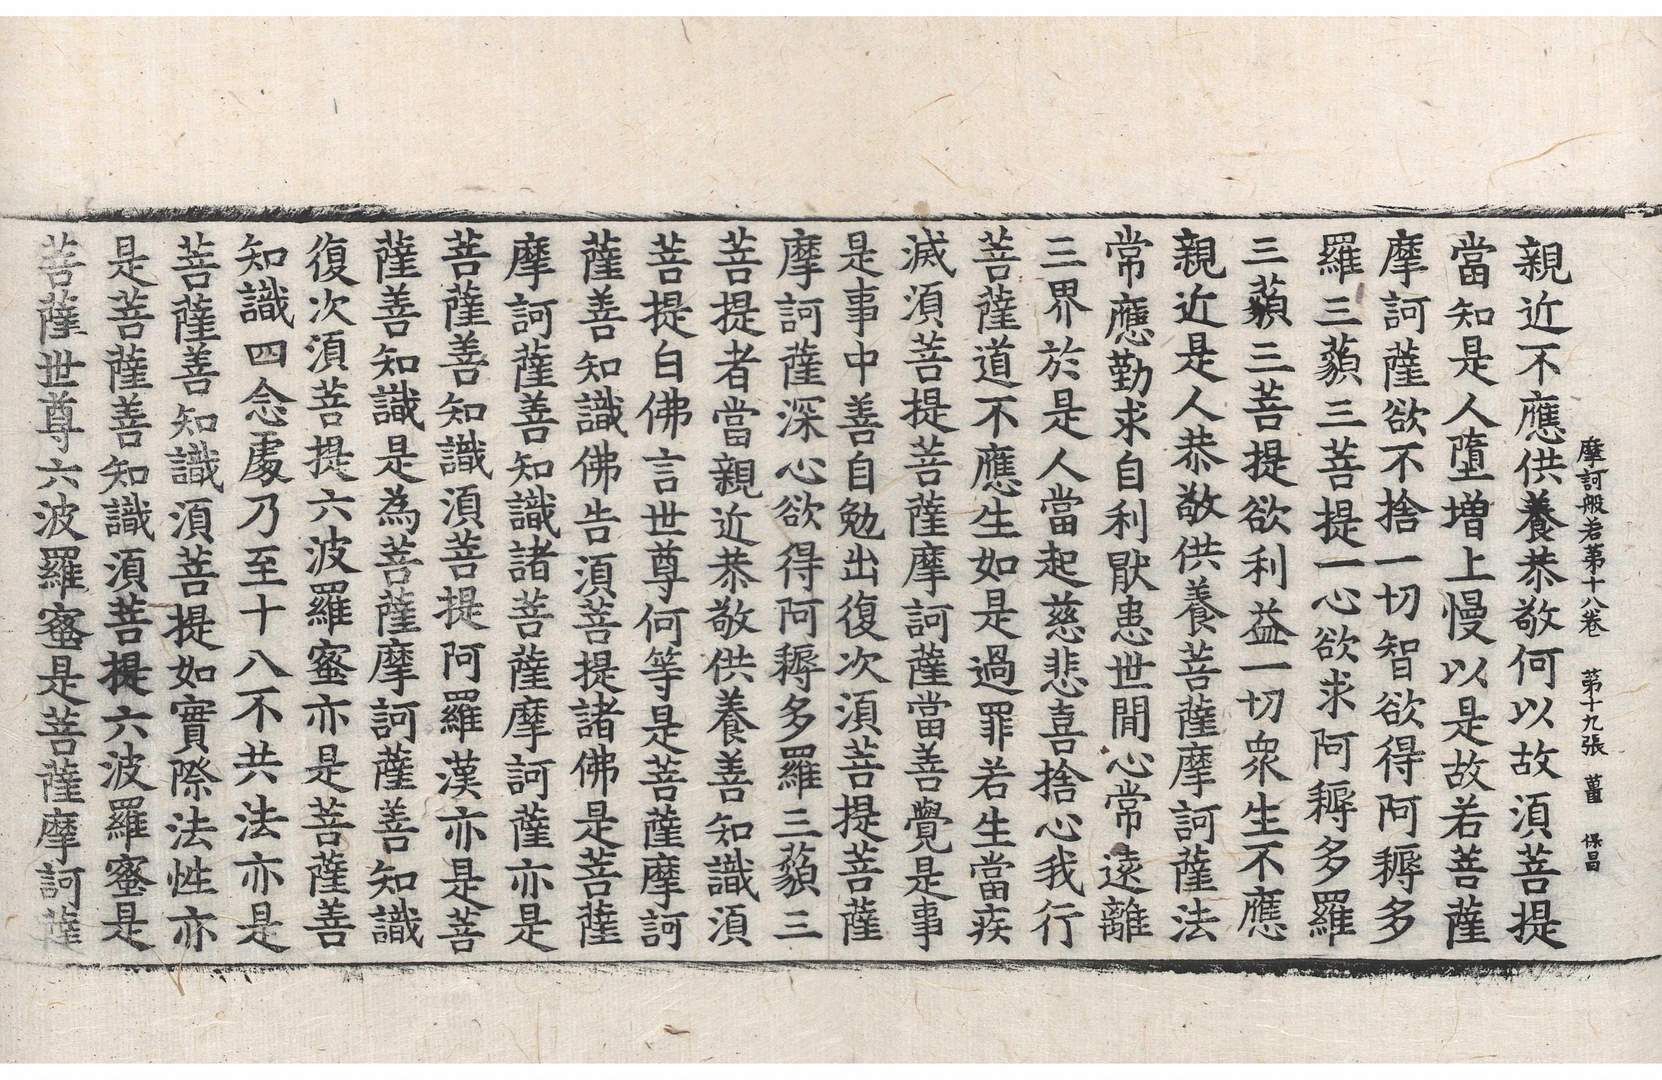 摩訶般若第十八卷 第十九張 薑 保昌
親近不應供養恭敬何以故須菩提
當知是人墮增上慢以是故若菩薩
摩訶薩欲不捨一切智欲得阿耨多
羅三藐三菩提一心欲求阿耨多羅
三藐三菩提欲利益一切衆生不應
親近是人恭敬供養菩薩摩訶薩法
常應勤求自利厭患世閒心常遠離
三界於是人當起慈悲喜捨心我行
菩薩道不應生如是過罪若生當疾
滅須菩提菩薩摩訶薩當善覺是事
是事中善自勉出復次須菩提菩薩
摩訶薩深心欲得阿耨多羅三藐三
菩提者當親近恭敬供養善知識須
菩提白佛言世尊何等是菩薩摩訶
薩善知識佛告須菩提諸佛是菩薩
摩訶薩善知識諸菩薩摩訶薩亦是
菩薩善知識須菩提阿羅漢亦是菩
薩善知識是為菩薩摩訶薩善知識
復次須菩提六波羅蜜亦是菩薩善
知識四念處乃至十八不共法亦是
菩薩善知識須菩提如實際法性亦
是菩薩善知識須菩提六波羅蜜是
菩薩世尊六波羅蜜是菩薩摩訶薩